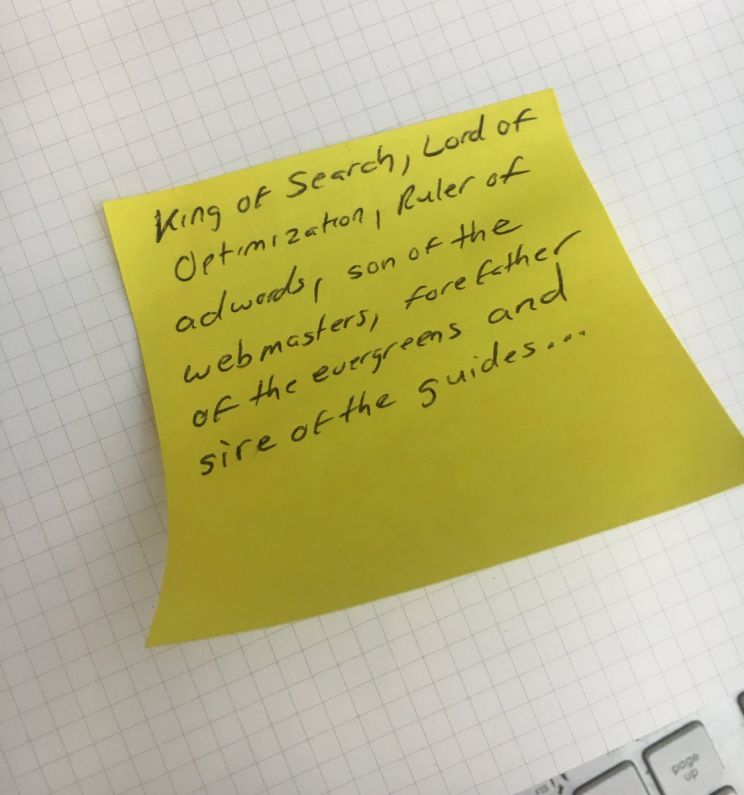 King of Search, Lord of
Optimization, Ruler of
adwords, son of the
webmasters, forefather
of the evergreens and
sire of the guides...
page
up